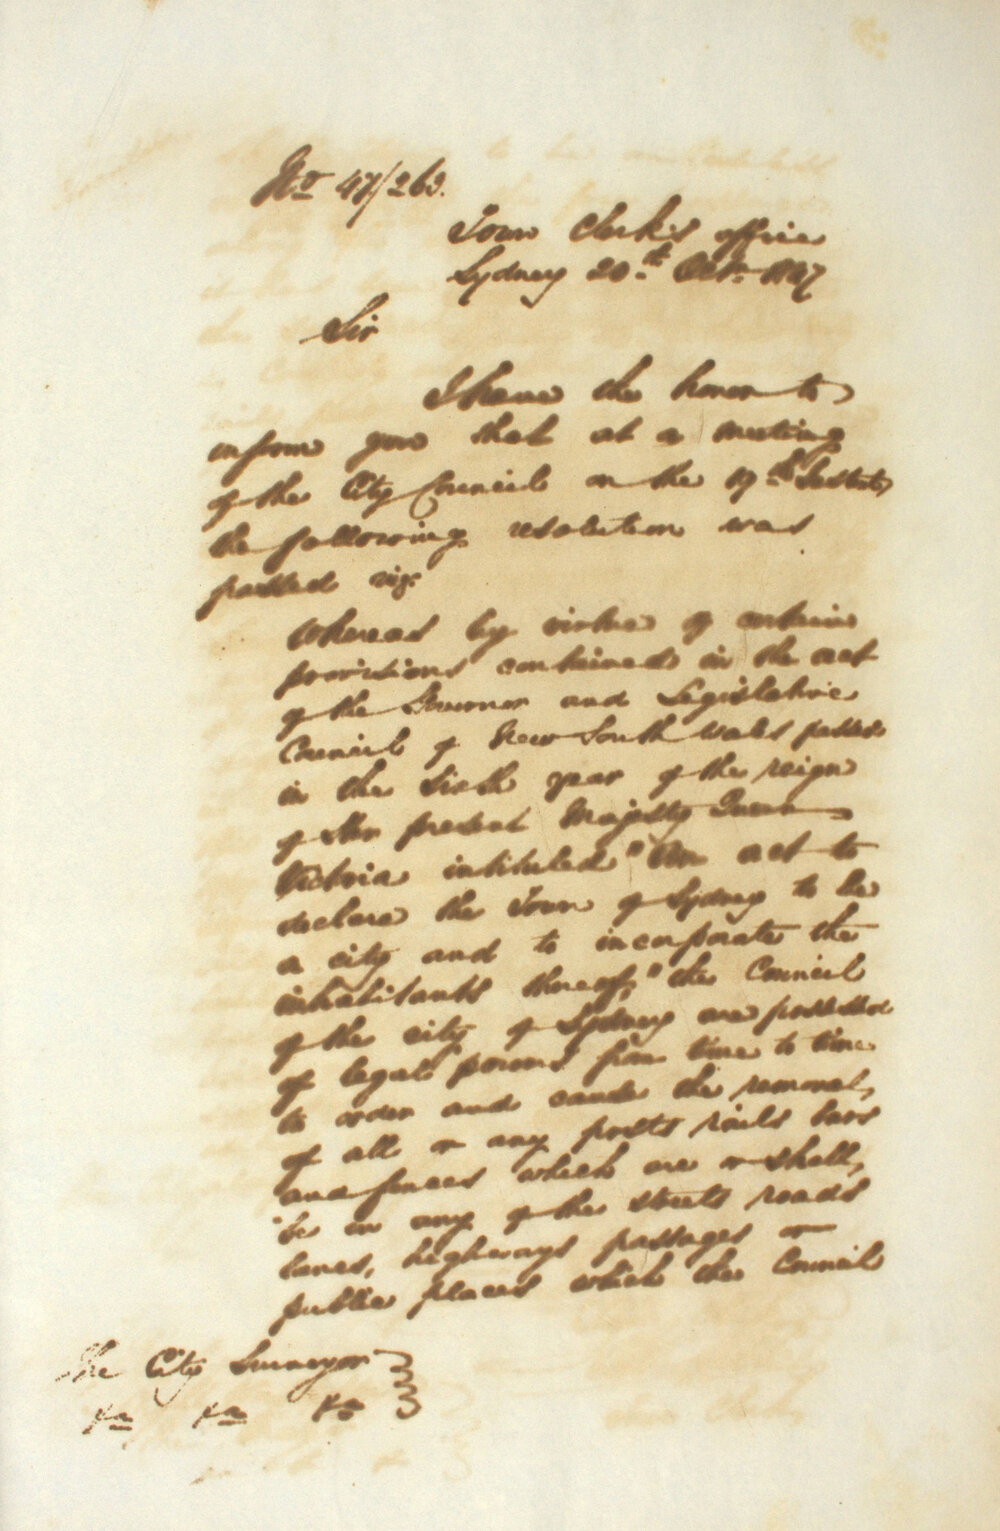 No 47/263.
Town Clerk's office
Sydney 20th Octr. 1847
Sir
I have the honor to
inform you that at a meeting
of the City Council on the 19th Instant,
the following resolution was
passed viz:
Whereas by virtue of certain
provisions contained in the act
of the Governor and Legislative
Council of New South Wales passed
in the sixth year of the reign
of Her present Majesty Queen
Victoria intituled "An act to
declare the Town of Sydney to be
a city and to incorporate the
inhabitants thereof," the Council
of the city of Sydney are possessed
of legal powers from time to time
to order and cause the removal,
of all or any posts rails bars
and fences which are or shall,
be in any of the streets roads
lanes, highways passages or
public places which the Council
The City Surveyor
&a &a &a